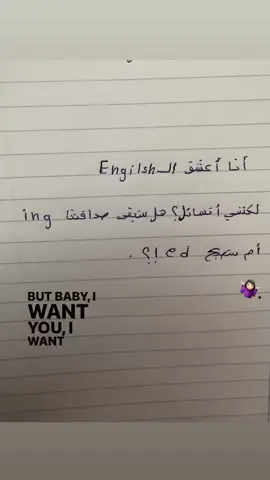 أنا أعشق الـ Engilsh
لكنني أتسائل؟ هل ستبقى صداقتنا ing
أم ستصبح ed !؟ .
BUT BABY, I
WANT
YOU, I
WANT